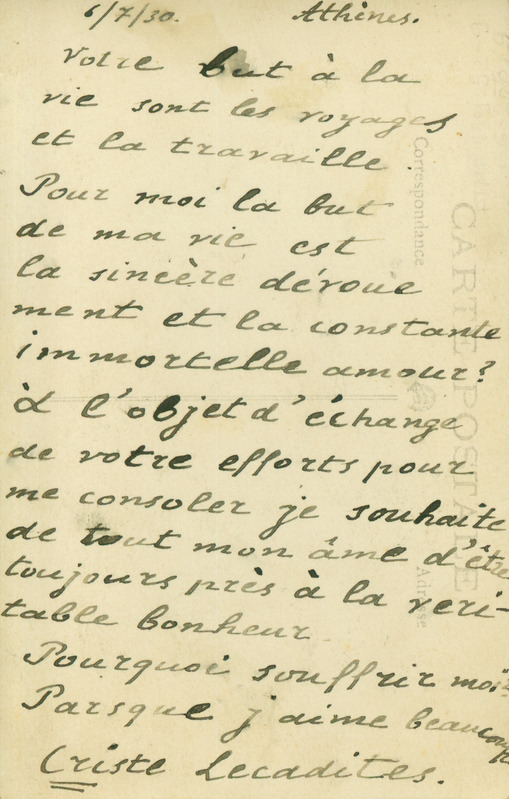 6/7/30. Athènes.
Votre but à la
vie sont les voyages
et la travaille
Pour moi la but
de ma vie est
la sincère dévoue
ment et la constante
immortelle amour?
à l'objet d'échange
de votre efforts pour
me consoler je souhaite
de tout mon âme d'être
toujours près à la veri-
table bonheur
Pourquoi souffrir moi?
Parsque j'aime beaucoup
Criste Lecadites.
CARTE POSTALE
Correspondance
Adresse